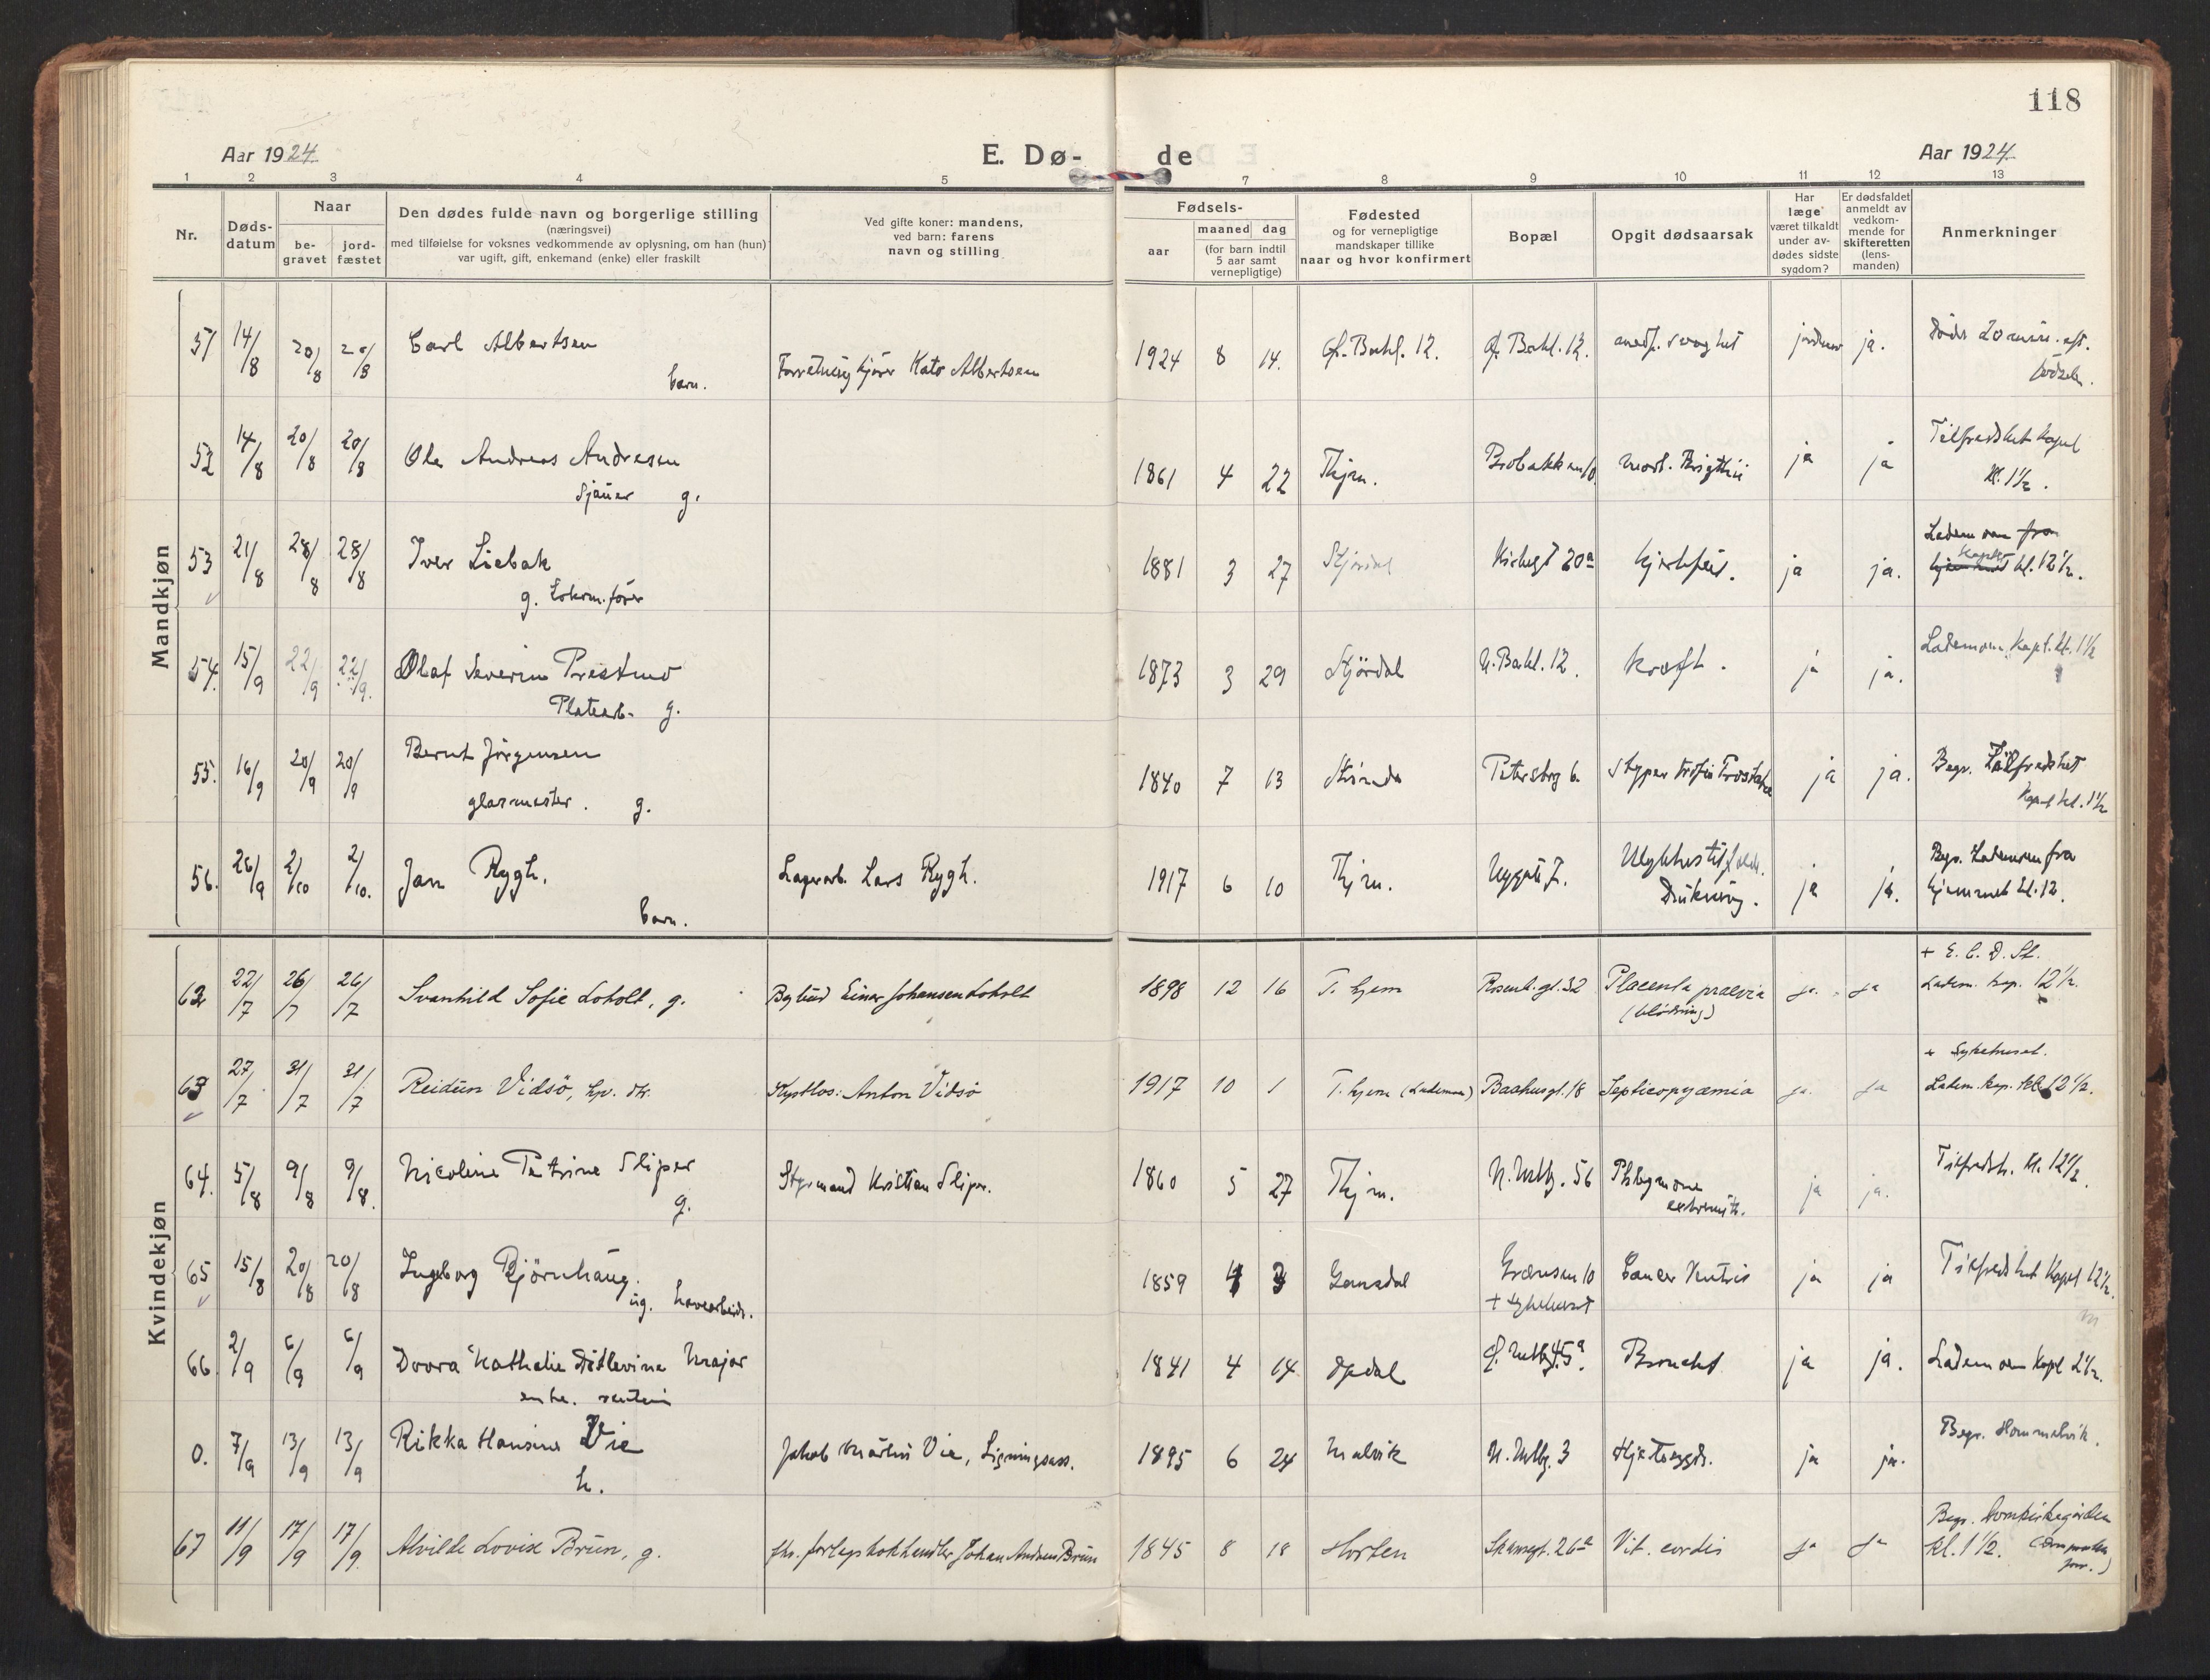 118
Aar 1924.
E. Dø-
de
Aar 1924.
1 2 3 4 5 7 8 9 10 11 12 13
Nr.
Døds-
datum
Naar
be-
gravet
jord-
fæstet
Den dødes fulde navn og borgerlige stilling
(næringsvei)
med tilføielse for voksnes vedkommende av oplysning, om han (hun)
var ugift, gift, enkemand (enke) eller fraskilt
Ved gifte koner: mandens,
ved barn: farens
navn og stilling
Fødsels-
aar
maaned dag
(for barn indtil
5 aar samt
vernepligtige)
Fødested
og for vernepligtige
mandskaper tillike
naar og hvor konfirmert
Bopæl
Opgit dødsaarsak
Har
læge
været tilkaldt
under av-
dødes sidste
sygdom?
Er dødsfaldet
anmeldt av
vedkom-
mende for
skifteretten
(lens-
manden)
Anmerkninger
Mandkjøn
51 14/8 20/8 20/8 Carl Albertsen
barn. Kato Albertsen 1924 8 14. Bakl. 12. Bakl. 12. ja.
52 14/8 20/8 20/8 Ole Andreas Andresen
Sjauer g. 1861 4 22 Thjm. Brobakken 10 ja ja Tilfredshet Kapel
Kl. 1½.
53 21/8 28/8 28/8 Iver Liebak
g. Lokom.fører 1881 3 27 Stjørdal Kirkegt 20a hjertefeil. ja ja. Lademoen fra
Kapel kl. 12½.
54. 15/9 22/9 22/9. Olaf Severin Prestmo
Platearb. g. 1873 3 29 Stjördal N. Bakl. 12. kræft. ja ja. Lademoen Kapl. kl. 1½
55. 16/9 20/9 20/9 Bernt Jörgensen
glasmester. g. 1840 7 13 Strinda Petersbg 6. ja ja. Begr. Tilfredshet
Kapel kl. 1½
56. 26/9 2/10 2/10. Jan Rygh.
barn. Lagerarb. Lars Rygh. 1917 6 10 Thjm. Ulykkestilfælde.
Drukning. ja ja. Begr. Lademoen fra
hjemmet kl. 12.
Kvindekjøn
62 22/7 26/7 26/7 Svanhild Sofie Loholt, g. Bybud Einar Johansen Loholt 1898 12 16 T. hjem Rosenb. gt. 32 Placenta praevia
(blödning) ja. ja + E. C. D. St.
Ladem. kap. 12½.
63 27/7 31/7 31/7 Reidun Vidsö, Anton Vidsö 1917 10 1 T. hjem (Lademoen) Baahusgt. 18 Septicopyæmia ja. ja + Sykehuset.
Ladem. kap. kl. 12½.
64. 5/8 9/8 9/8. Nicoline Petrine Sliper
g. Styrmand Kristian Sliper. 1860 5 27 Thjm. N. Mllbg. 56 Phlegmone
extremit. ja ja. Tilfredsh. kl. 12½.
65 15/8 20/8 20/8 Ingeborg Bjørnhaug.
ug. havearbeids. 1859 4 3 Grænsen 10
+ sykehuset Cancer Ventris ja ja Tilfredshet Kapel 12½.
66 2/9 6/9 6/9 Dvora Nathalie Ditlevine Major
enke. 1841 4 14 Opdal Bronchit ja ja. Lademoen Kapl 2½.
0. 7/9 13/9 13/9 Rikka Hansine Vie
h. Jakob Martin Vie, Ligningsass. 1895 6 24 Malvik N. Mllbg. 3 ja ja. Begr. Hommelvik.
67 11/9 17/9 17/9. Alvilde Lovise Brun, g. fhv. forlagsbokhandler Johan Andreas Brun 1845 8 18 Horten Skansegt. 26a Vit. cordis ja ja Begr. Domkirkegården
kl. 1½.